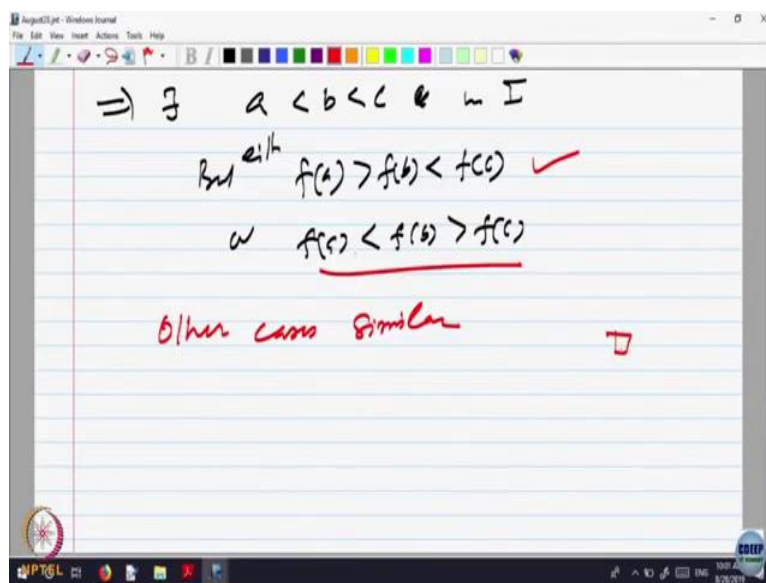 August28.jnt - Windows Journal
File Edit View Insert Actions Tools Help
B I
⇒ ∃ a < b < c in I
But eith f(a) > f(b) < f(c) ✓
or f(c) < f(b) > f(c)
Other cases similar
NPTEL
ENG
8/28/2019
CDEEP